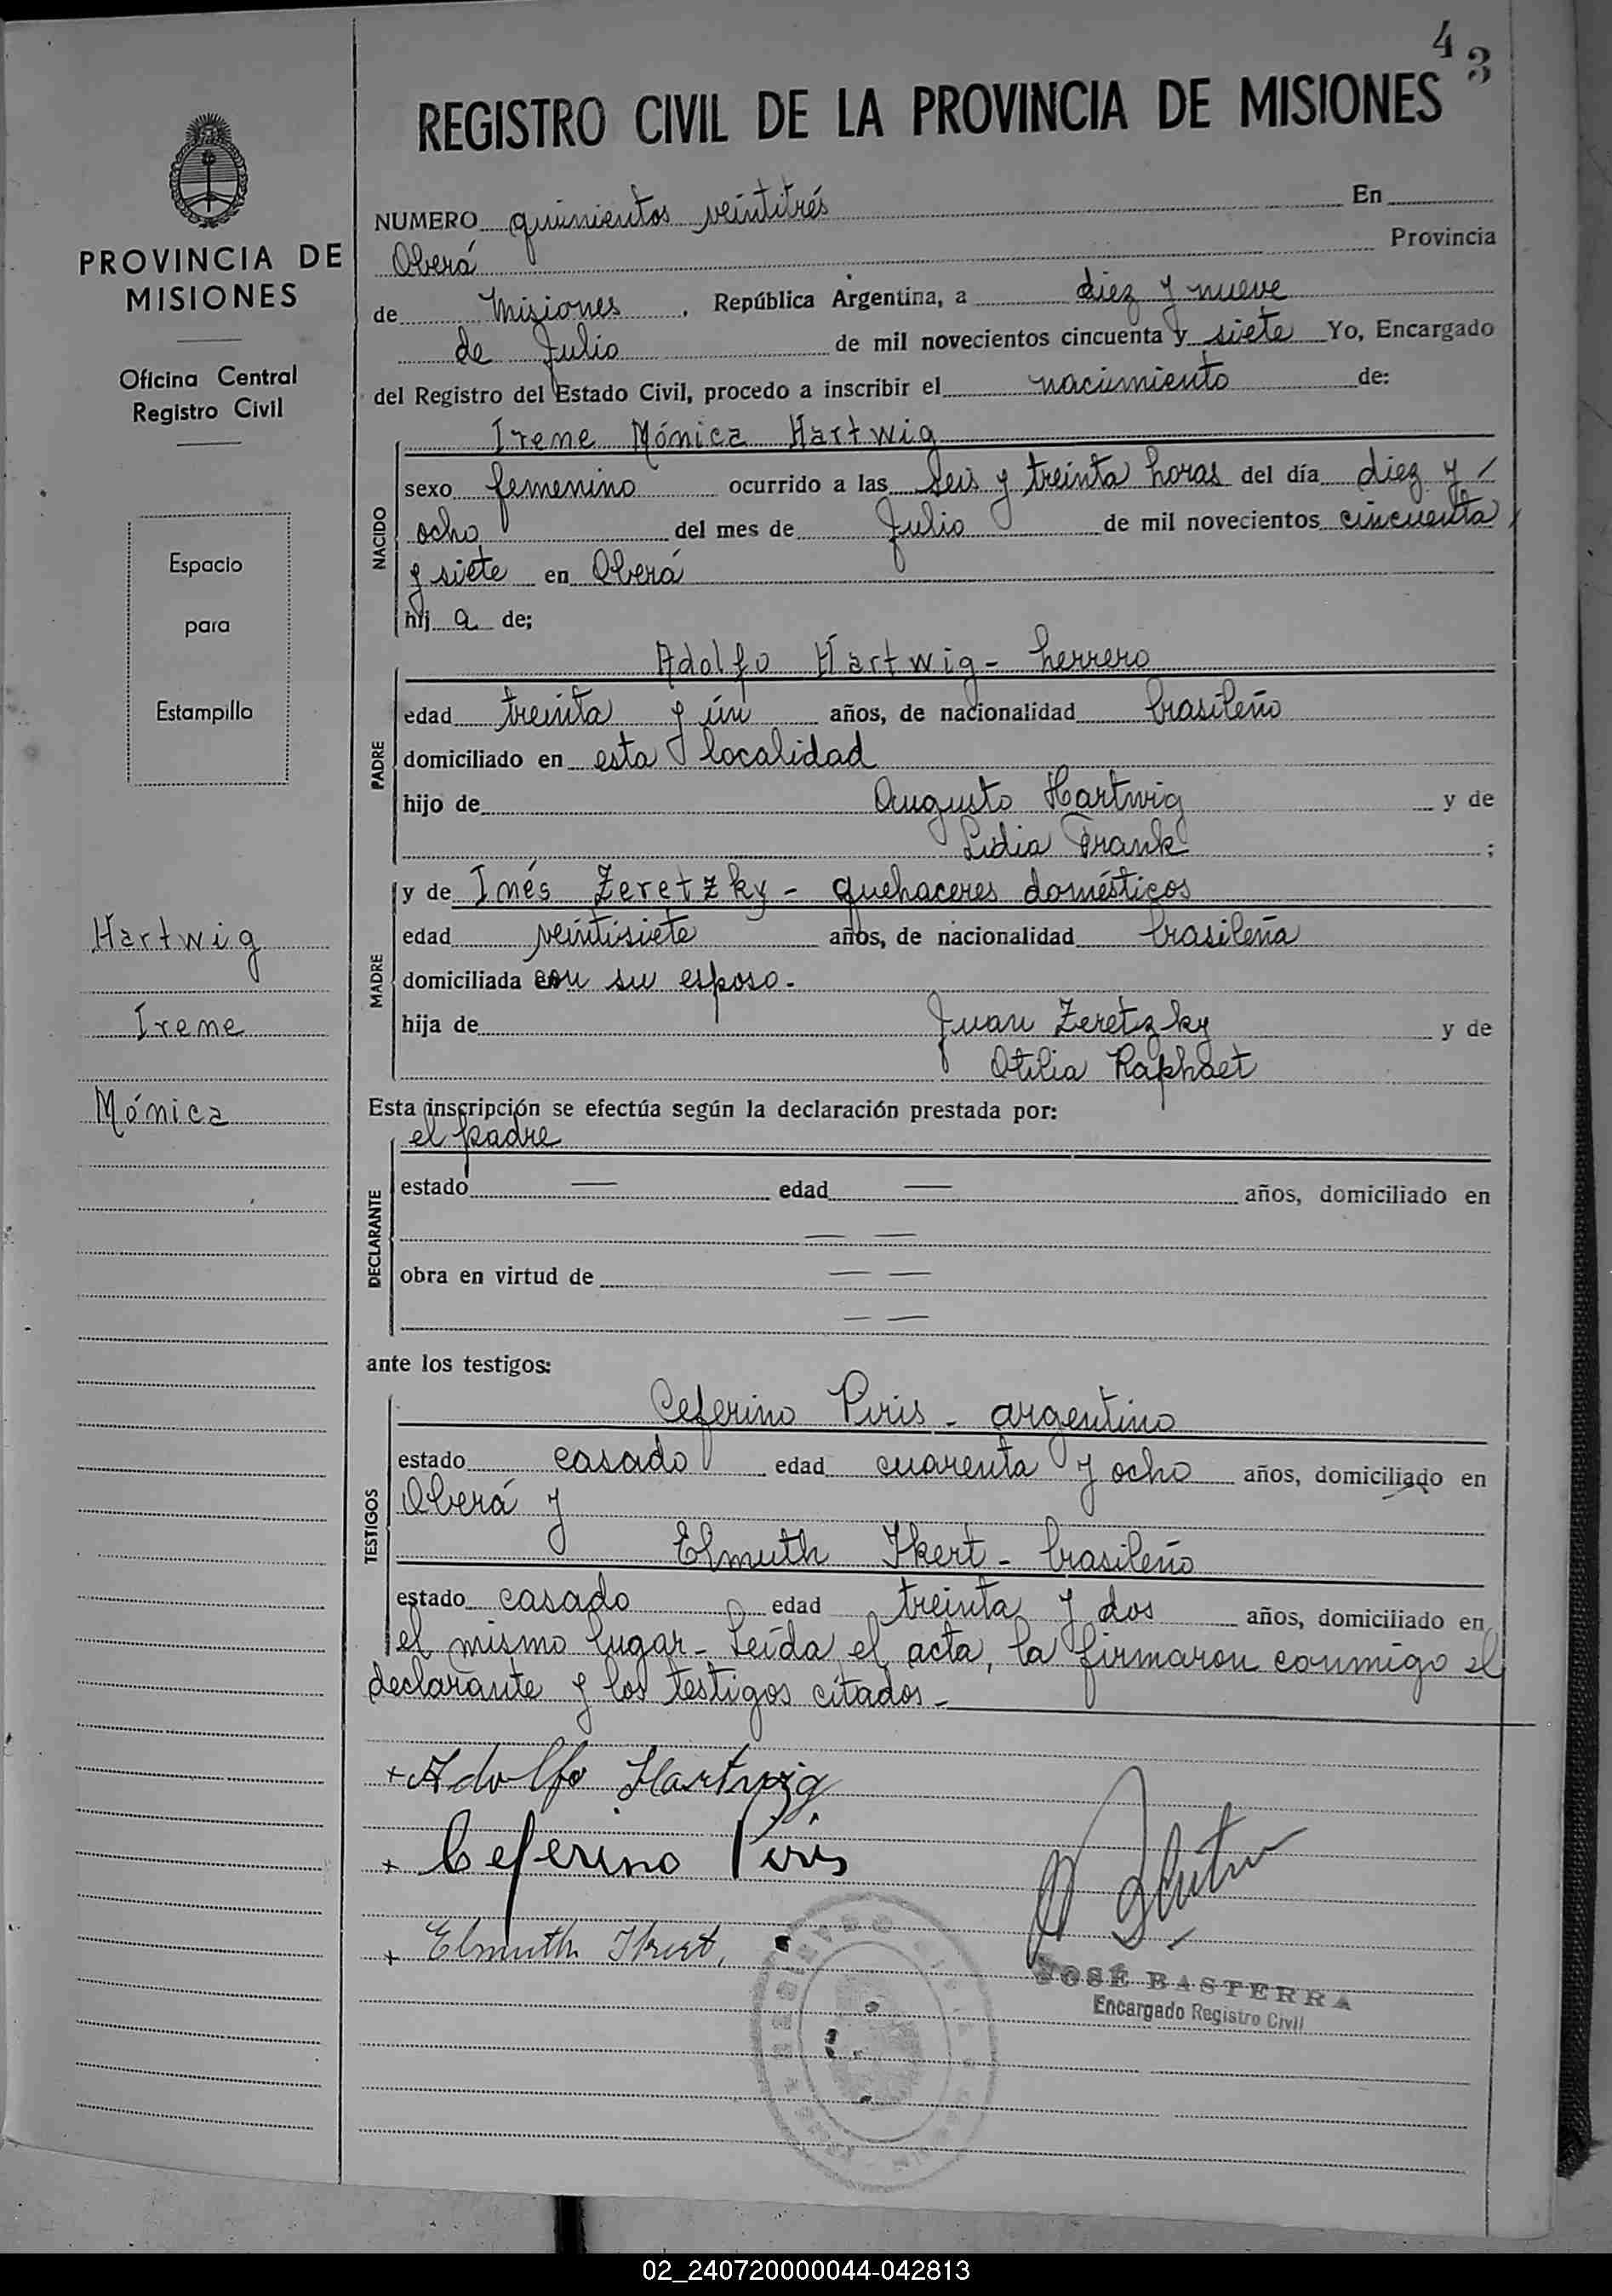 4 3
REGISTRO CIVIL DE LA PROVINCIA DE MISIONES
PROVINCIA DE
MISIONES
Oficina Central
Registro Civil
Espacio
para
Estampilla
Hartwig
Irene
Mónica
NUMERO quinientos veintitrés En
Oberá Provincia
de Misiones, República Argentina, a diez y nueve
de Julio de mil novecientos cincuenta y siete Yo, Encargado
del Registro del Estado Civil, procedo a inscribir el nacimiento de:
NACIDO
Irene Mónica Hartwig
sexo femenino ocurrido a las seis y treinta horas del día diez y
ocho del mes de Julio de mil novecientos cincuenta
y siete en Oberá
hij a de;
PADRE
Adolfo Hartwig - herrero
edad treinta y ún años, de nacionalidad brasileño
domiciliado en esta localidad
hijo de Augusto Hartwig y de
Lidia Frank ;
MADRE
y de Inés Zeretzky - quehaceres domésticos
edad veintisiete años, de nacionalidad brasileña
domiciliada con su esposo.
hija de Juan Zeretzky y de
Otilia Raphaet
Esta inscripción se efectúa según la declaración prestada por:
DECLARANTE
el padre
estado — edad — años, domiciliado en
— —
obra en virtud de — —
— —
ante los testigos:
TESTIGOS
Ceferino Piris - argentino
estado casado edad cuarenta y ocho años, domiciliado en
Oberá y
Elmuth Ikert - brasileño
estado casado edad treinta y dos años, domiciliado en
el mismo lugar - Leída el acta, la firmaron conmigo el
declarante y los testigos citados -
+ Adolfo Hartwig
+ Ceferino Piris
+ Elmuth Ikert
JOSÉ BASTERRA
Encargado Registro Civil
02_240720000044-042813